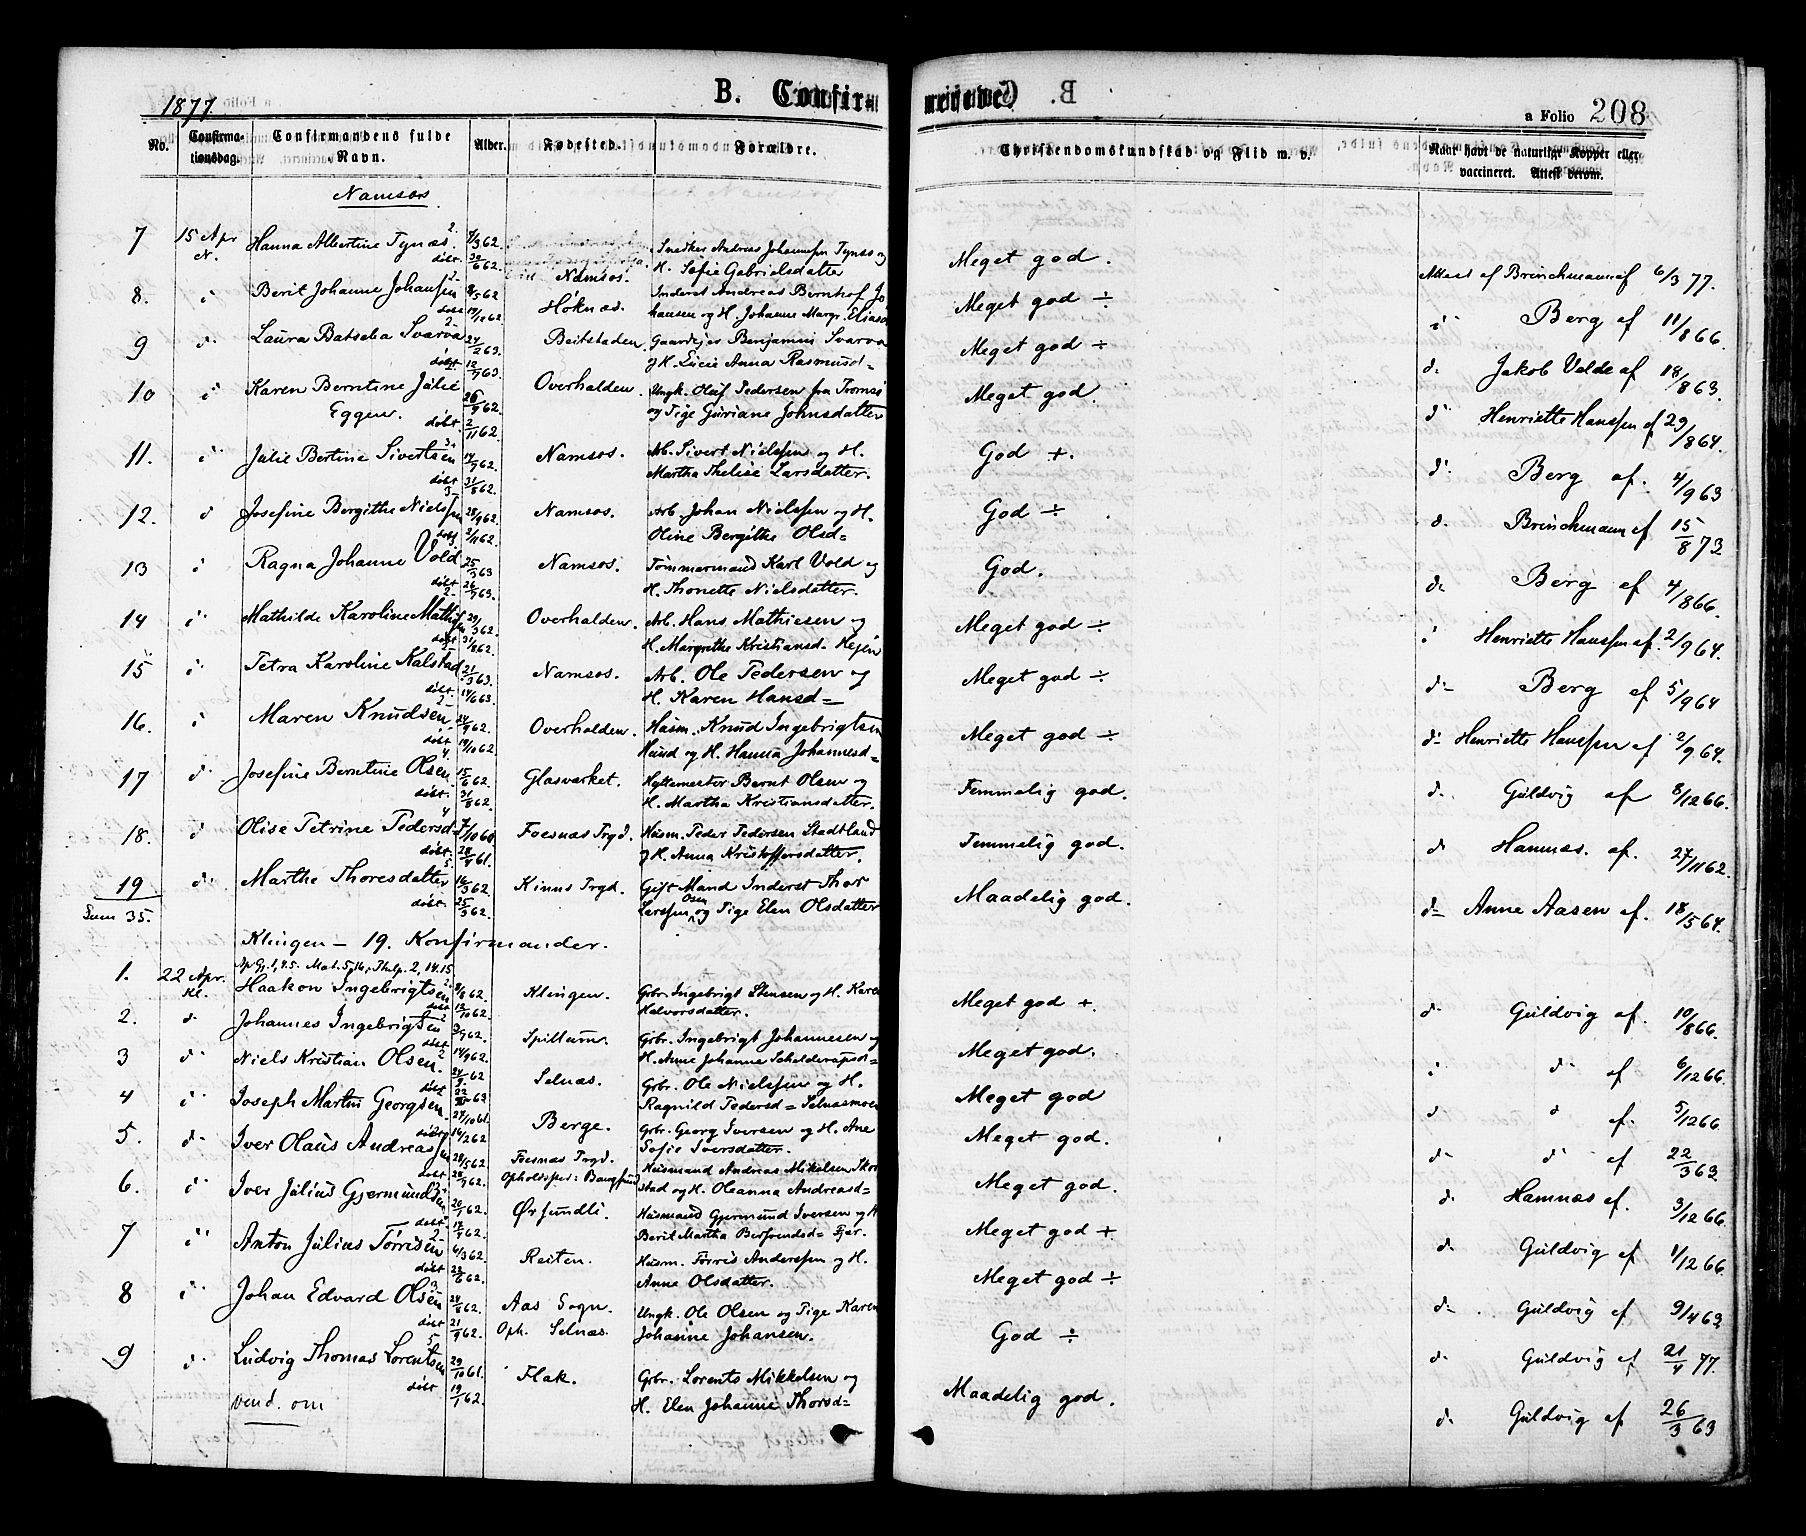 1877.
B. Confirmerede.
a Folio 208
No.
Confirma-
tionsdag.
Confirmandens fulde
Navn.
Alder.
Fødested.
Forældre.
Christendomskundskab og Flid m. v.
Naar havt de naturlige Kopper eller
vaccineret. Attest derom.
Namsos
7 15 Apr Hanna Albertine Tynæs. 7/3 62. Snedker Andreas Johannsen Tynæs og
N. døbt Namsos. H. Sofie Gabrielsdatter Meget god. Attest af Brinchmann af 6/3 77.
8. Berit Johanne Johansen 8/5 62 Høknæs. Inderst Andreas Bernhof Jo
døbt 19/12 62. hansen og H. Johanne Margr. Meget god ÷ Berg af 11/8 66.
9 d. Laura Batseba Svarva 24/2 63. Beitstaden. Gaardejer Benjamin Svarva
døbt 12/9 63. og H. Lucie Anna Rasmusd= Meget god ÷ d. Jakob Velde af 18/8 63.
10 Karen Berntine Julie 26/9 62. Overhalden. Ungk. Oluf Pedersen fra Tromsø
Eggen. døbt. 2/11 62. og Pige Guriane Johnsdatter Meget god. d Henriette Hanssen af 29/8 64.
11. Julie Bertine Sivertsen 14/7 62. Namsos. Arb. Sivert Nielssen og H.
døbt 31/8 62. Martha Larsdatter. God +. d. Berg af. 4/9 63
12. d Josefine Bergithe Nielssen 28/9 62. Namsos. Arb. Johan Nielssen og H.
døbt 2/11 62. Oline Bergithe Olsd= God ÷ d. Brinchmann af 15/8 73
13 Ragna Johanne Vold 25/3 63 Namsos. Tømmermand Karl Vold og
døbt 26/7 63. H. Thonette Nielsdatter. God. d. Berg af 4/8 66.
14 Mathilde Karoline Mathisen 29/3 62. Overhalden. Arb. Hans Mathiesen og
døbt 31/8 62. H. Margrethe Kristiansd= Meget god ÷ Henriette Hanssen af. 2/9 64.
15 Petra Karoline Kalstad 21/3 63. Namsos. Arb. Ole Pedersen og
døbt. 14/6 63. H. Karen Hansd= Meget god ÷ d= Berg af 5/9 64
16. Maren Knudsen 24/9 62. Overhalden. Husm. Knud Ingebrigtsen
døbt 19/10 62 Hund og H. Hanna Johannesd= Meget god ÷ d= Henriette Hanssen af 2/9 64.
17 d. Josefine Berntine Olsen 15/6 62. Glasværket. Hyttemester Bernt Olsen og
døbt. 31/8 62. H. Martha Kristiansdatter. Temmelig god. d. Guldvig af 8/12 66.
18. d Olise Petrine Pedersd= 7/10 60. Foesnæs Prgd. Husm. Peder Pedersen Stadtland
døbt 28/4 61. og H. Anna Kristoffersdatter. Temmelig god. d Hamnæs. af. 27/11 62.
19 d. Marthe Thoresdatter 16/3 62. Kinns Prgd. Gift Mand Inderst Thor
Sum 35. døbt. 25/3 62. Larssen Osen og Pige Elen Olsdatter Maadelig god. d= Anne Aasen af. 18/5 64.
Klingen — 19. Konfirmander.
1. 22 Apr. Haakon Ingebrigtsen 8/8 62. Klingen. Grbr. Ingebrigt Stensen og H. Karen
Kl. døbt 12/10 62. Halvorsdatter. Meget god +. d. Guldvig af. 10/8 66.
2. d. Johannes Ingebrigtsen 62. Spillum. Grbr. Ingebrigt Johannesen og
døbt 14/9 62. H. Anne Johanna Meget god. d af 6/12 66.
3 d. Niels Kristian Olsen. 24/9 62 Selnæs. Grbr. Ole Nielssen og H.
døbt Ragnild Pedersd= Selnæsmoen Meget god d d af. 5/12 66.
4 Joseph Martin Georgsen 27/10 61. Berge. Grbr. Georg Iversen og H. Ane
døbt 16/2 62 Sofie Iversdatter. Meget god. d. d af 22/3 63
5. d. Iver Olaus Andreassen 28/5 62 Foesnæs Prgd. Husmand Andreas Mikelsen
døbt 28/9 62. Opholdssted: Bangsund stad og H. Oleanna Andreasd= Meget god. d. Hamnæs af. 3/12 66.
6. Iver Julius Gjermundsen 20/1 62. Ørsundli. Husmand Gjermund Iversen og H
døbt. Berit Martha Meget god + d. Guldvig af 1/12 66.
7 Anton Julius Tørrisen 4/3 62. Reiten. Husm. Tørris Anderssen og H.
døbt 22/6 62. Anne Olsdatter. Meget god ÷ d. Guldvig af 9/4 63
8 Johan Edvard Olsen 62. Aas Sogn. Ungk. Ole Olsen og Pige Karen
døbt 21/9 62. Oph. Selnæs. Johanne Johansen. God ÷ d. Guldvig af 21/4 77.
9 d. Ludvig Thomas Lorentsen 29/10 61. Flak. Grbr. Lorents Mikkelsen og
døbt 19/1 62. H. Elen Johanne Thorsd= Maadelig god. d. Guldvig af 26/3 63
vend. om